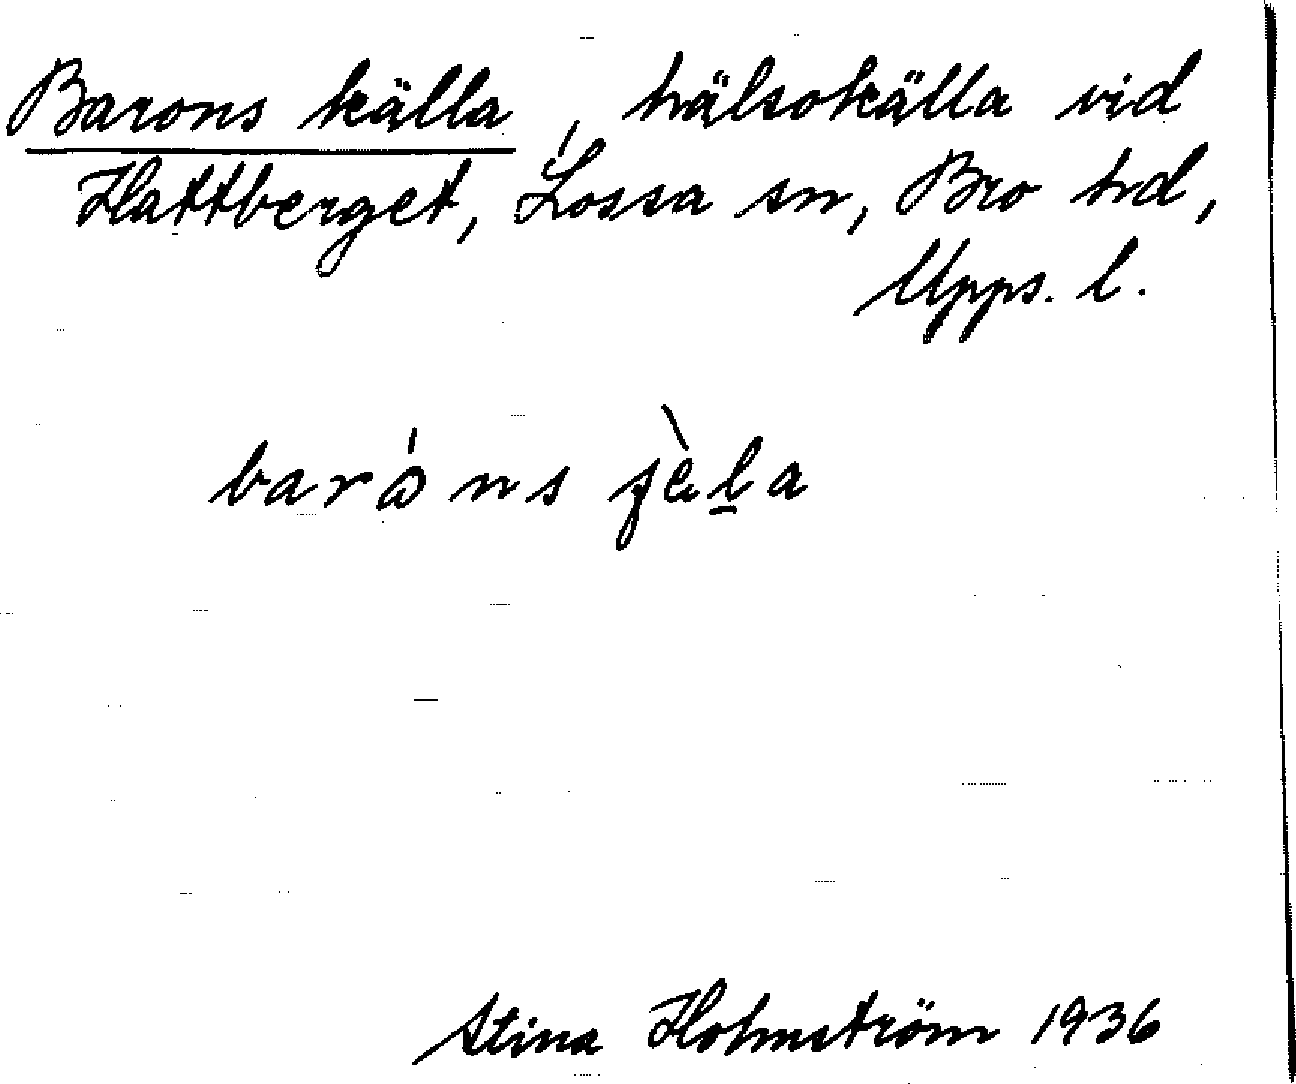 Barons källa, hälsokälla vid
Hattberget, Lossa sn, Bro hd,
Upps. l.
barɷ́ns ʃὲl̲a
Stina Holmström 1936